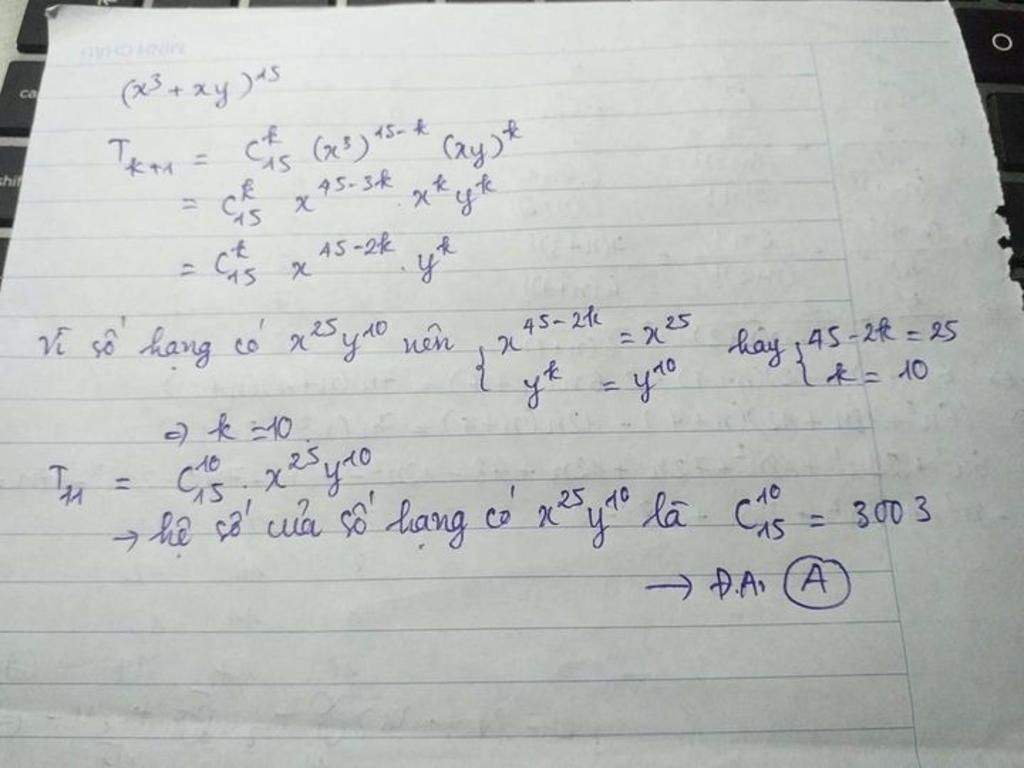 MINH CHAU
(x³ + xy)¹⁵
T_{k+1} = C_{15}^{k} (x³)^{15-k} (xy)^{k}
= C_{15}^{k} x^{45-3k} . x^{k} y^{k}
= C_{15}^{k} x^{45-2k} . y^{k}
Vì số hạng có x²⁵y¹⁰ nên { x^{45-2k} = x²⁵ hay { 45-2k = 25
y^{k} = y¹⁰ k = 10
⇒ k = 10
T₁₁ = C_{15}^{10} . x²⁵y¹⁰
→ hệ số của số hạng có x²⁵y¹⁰ là C_{15}^{10} = 3003
→ Đ.A: A